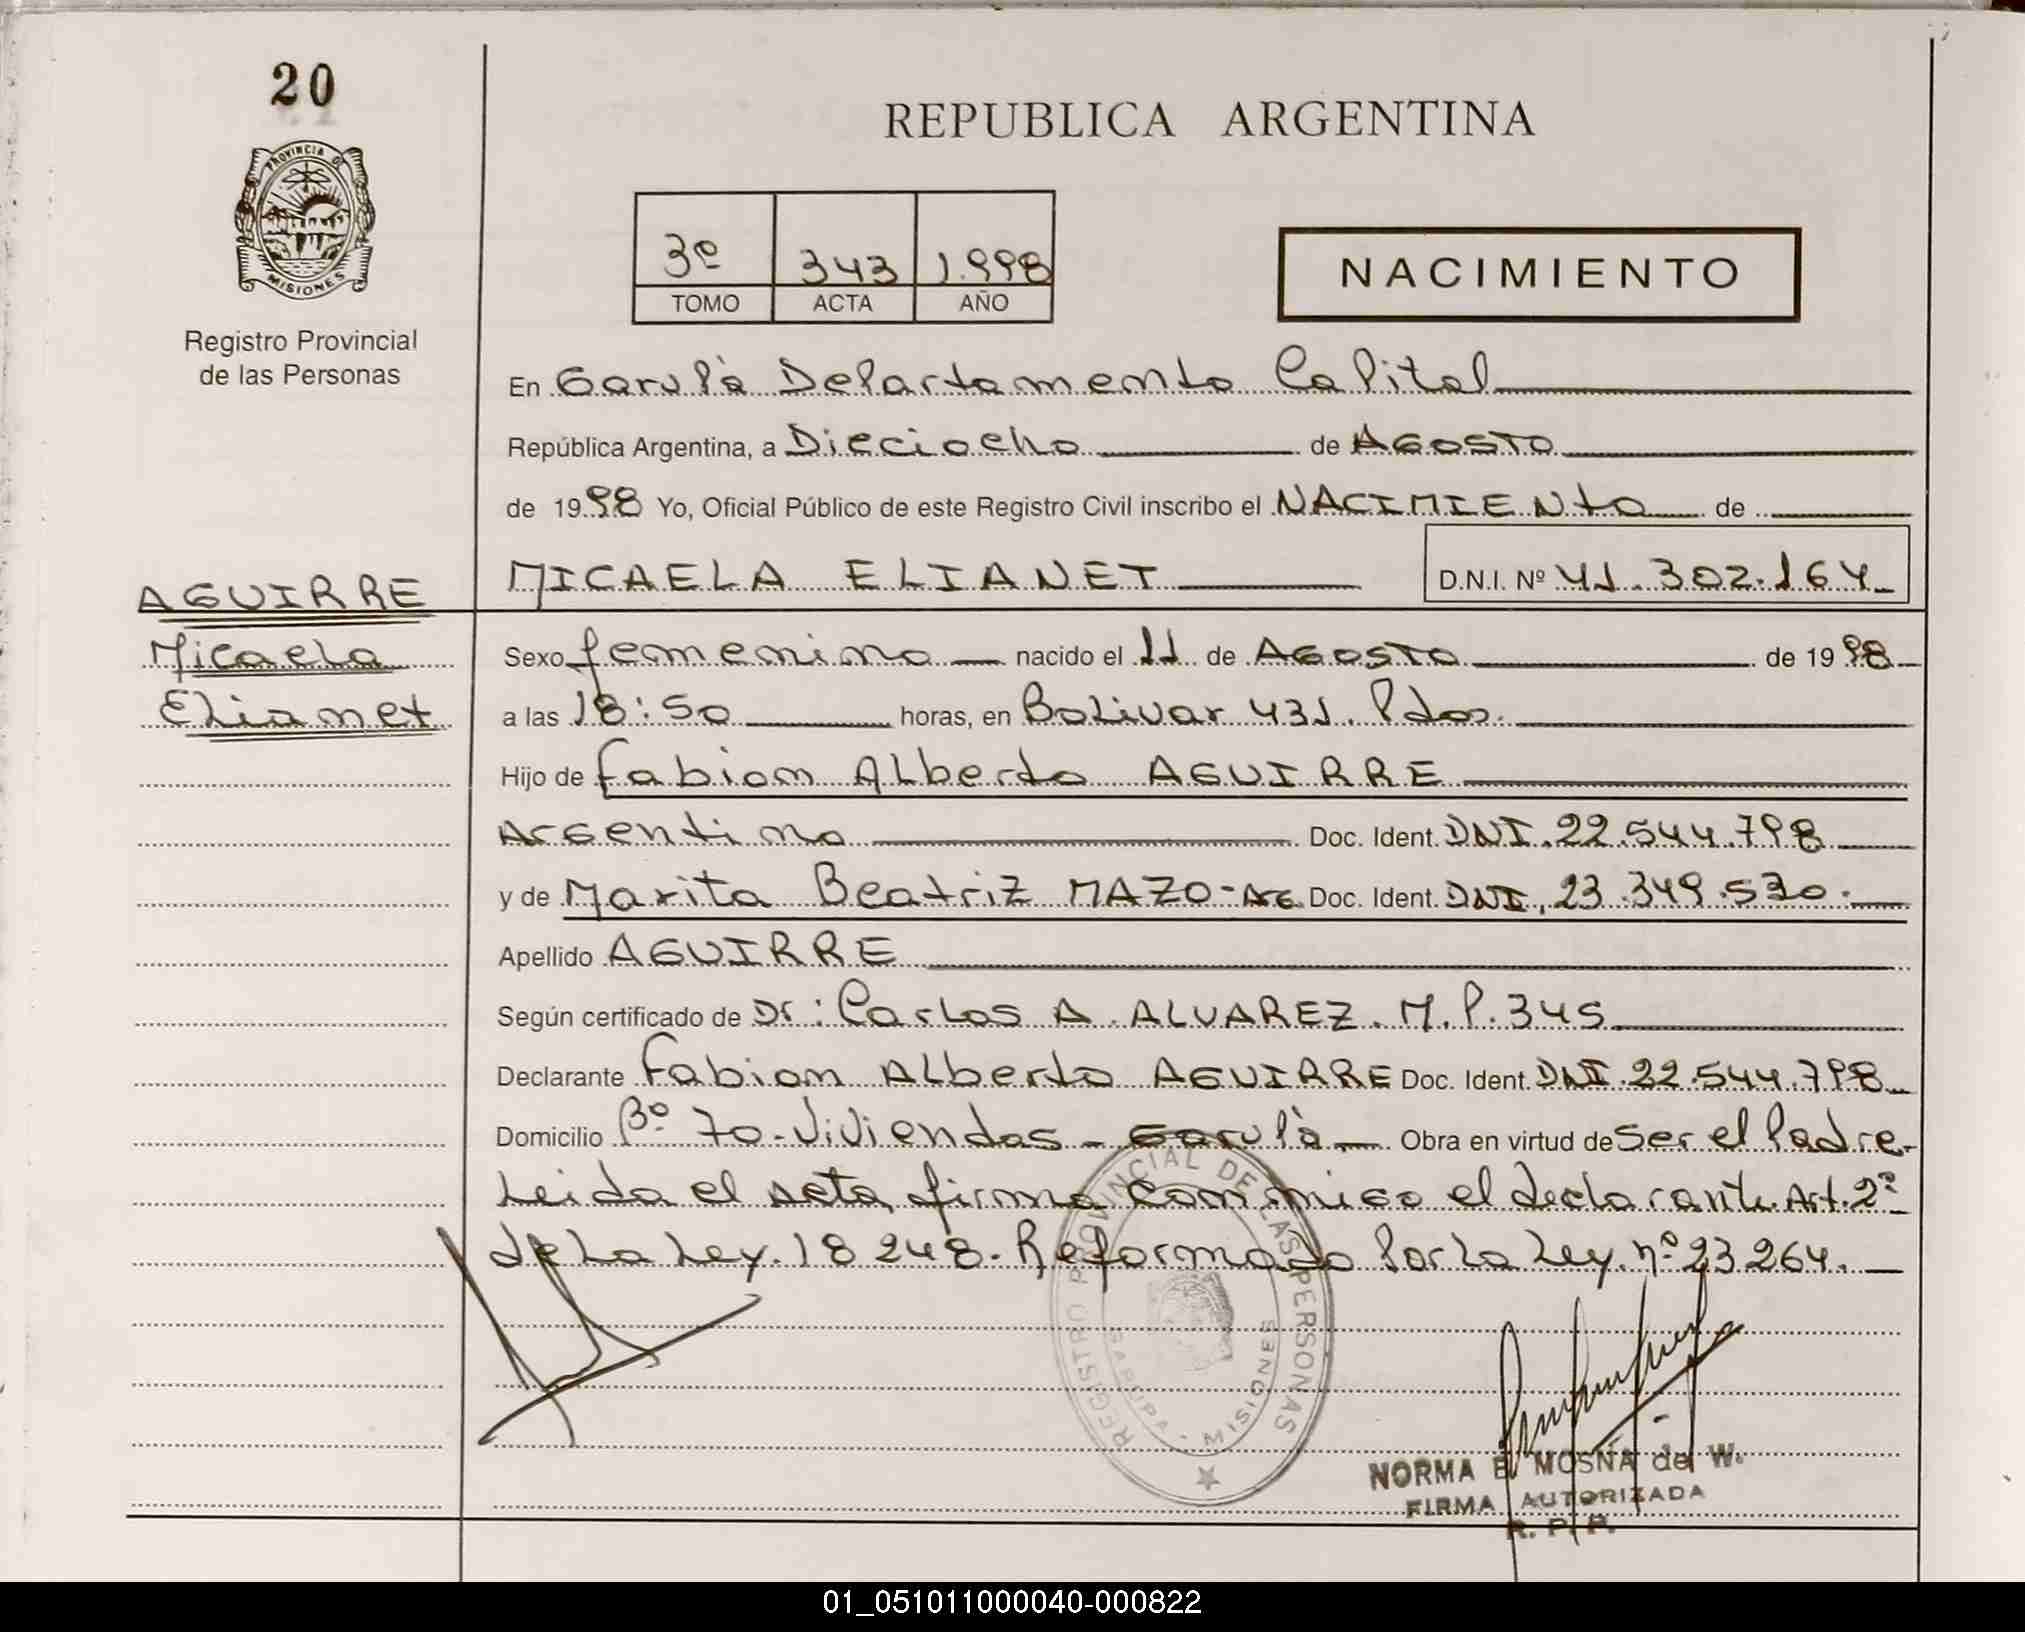 20
PROVINCIA DE
MISIONES
Registro Provincial
de las Personas
REPUBLICA ARGENTINA
3º 343 1.998
TOMO ACTA AÑO
NACIMIENTO
En Garupà Departamento Capital
República Argentina, a Dieciocho de AGOSTO
de 1998 Yo, Oficial Público de este Registro Civil inscribo el NACIMIENto de
MICAELA ELIANET D.N.I. Nº 41.302.164
AGUIRRE
Micaela
Elianet
Sexo femenino nacido el 11 de AGOSTO de 1998
a las 18:50 horas, en Bolivar 431. Pdas.
Hijo de Fabian Alberto AGUIRRE
Argentino Doc. Ident. DNI.22.544.798
y de Marita Beatriz MAZO-Arg. Doc. Ident. DNI.23.349.530.
Apellido AGUIRRE
Según certificado de Dr: Carlos A. ALVAREZ. M.P.345
Declarante Fabian Alberto AGUIRRE Doc. Ident. DNI.22.544.798
Domicilio Bº 70-Viviendas - Garupà Obra en virtud de ser el Padre-
Leida el acta, firma conmigo el declarante. Art.2º
de La Ley.18248. Reformado Por La Ley.nº23264.
REGISTRO PROVINCIAL DE LAS PERSONAS
GARUPA - MISIONES
NORMA E. MOSNA de W.
FIRMA AUTORIZADA
R. P. P.
01_051011000040-000822